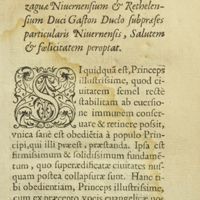 zaguæ Niuernensium & Rethelen-
sium Duci Gaston Duclo subpræses
particularis Niuernensis, Salutem
& fœlicitatem peroptat.
SI quidquã est, Princeps
illustrissime, quod ci-
uitatem semel recte
stabilitam ab euersio-
ne immunem conser-
uare & retinere possit,
vnica sane est obediẽtia à populo Prin-
cipi, qui illi præest, præstanda. Ipsa est
firmissimum & solidissimum fundamẽ-
tum, quo superædificatæ ciuitates nus-
quam postea collapsuræ sunt. Hanc ti-
bi obedientiam, Princeps illustrissime,
cum ex præcepto vocis euangelicæ nos